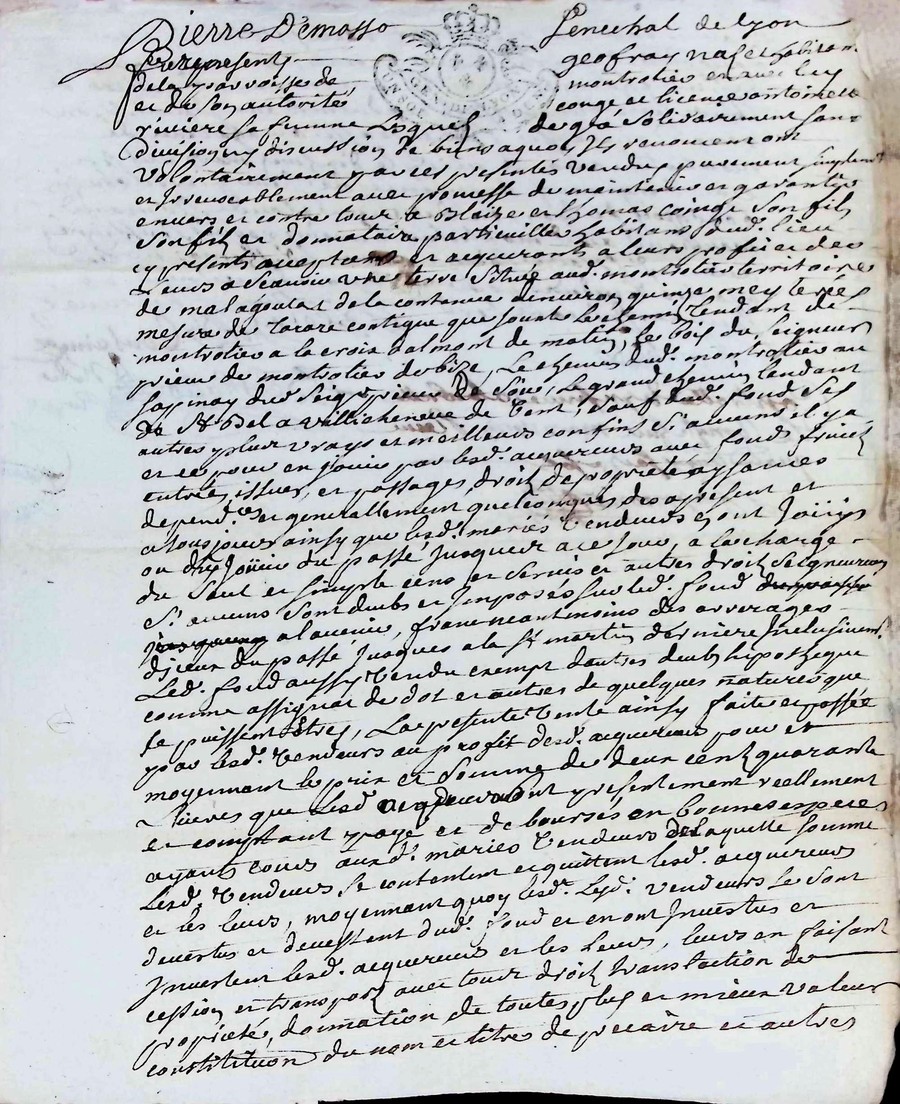 Pierre Demasso Senechal de lyon
geofray nag et habitan
dela parroisse de montrotier et avec luy
et de son autorité conge et licence antoinette
riviere sa femme Lesquels de gré Solidairement san-
division ny discussion de biens aquoy Ils renoncent
volontairement par ces presentes vendus purement simplem.t
et Irrevocablement avec promesse de maintenir et garantir
envers et contre tous a Blaize et thomas Coinde Son fils
Son fils et donnataire particulier habitans dud. lieu
cy presents acceptans et acquerants a leurs profit et des
Leurs a Scavoir une terre Située aud. montrotier territoire
de malagoutat de la contenue d'environ quinze meyteres
mesure de tarare contigue que Jouxte le chemin tendant de
montrotier a la croix balmont de matin, Le bois du Seigneur
prieur de montrotier de bize, Le chemin dud. montrotier au
sappinay dud Seigr prieur De Soir, Le grand chemin tendant
de St Bel a villecheneve de vent, Sauf dud. fond Ses
autres plus vrays et meilleurs confins Si aucuns il y a
et ce pour en jouir par lesd. acquereurs avec fonds fruits
entrées, issues, et passages, droits de proprieté aysances
depend.ces et generallement quelconques des apresent et
a tousjours ainsy que lesd. mariés Vendeurs en ont Jouis
ou du Jouir du passé Jusqueur a ce Jour, a la charge
du Seul et Simple cens et Servis et autres droits Seigneuriaux
Si aucuns Sont dubs et Imposés Sur led. fond
a l'avenir, franc neantmoins des arrerages
d'iceux du passé Jusques a la St martin derniere Inclusivem.t
Led. fond aussy Vendu exempt d'autres deubs hipotheque
comme assignat de dot et autres de quelques natures que
se puissent Etres, La presente Vente ainsy faite et passée
par lesd. Vendeurs au profit desd. acquereurs pour et
moyennant le prix et Somme de deux cents quarante
Livres que Lesd acquereurs ont presentement reellement
et comptant payé et deboursés en bonnes especes
ayants cours auxd. mariés Vendeurs de Laquelle Somme
Lesd. Vendeurs Se contentent et quittent lesd. acquereurs
et les leurs, moyennant quoy lesd. vendeurs Se Sont
devestus et devestent dud. fond et en ont Investus et
Investent lesd. acquereurs et les Leurs, leurs en faisant
cession et transport avec tous droits translaction de
proprieté, donnation de toutes plus et mieux valeur
constitution du nom et titre de precaire et autres